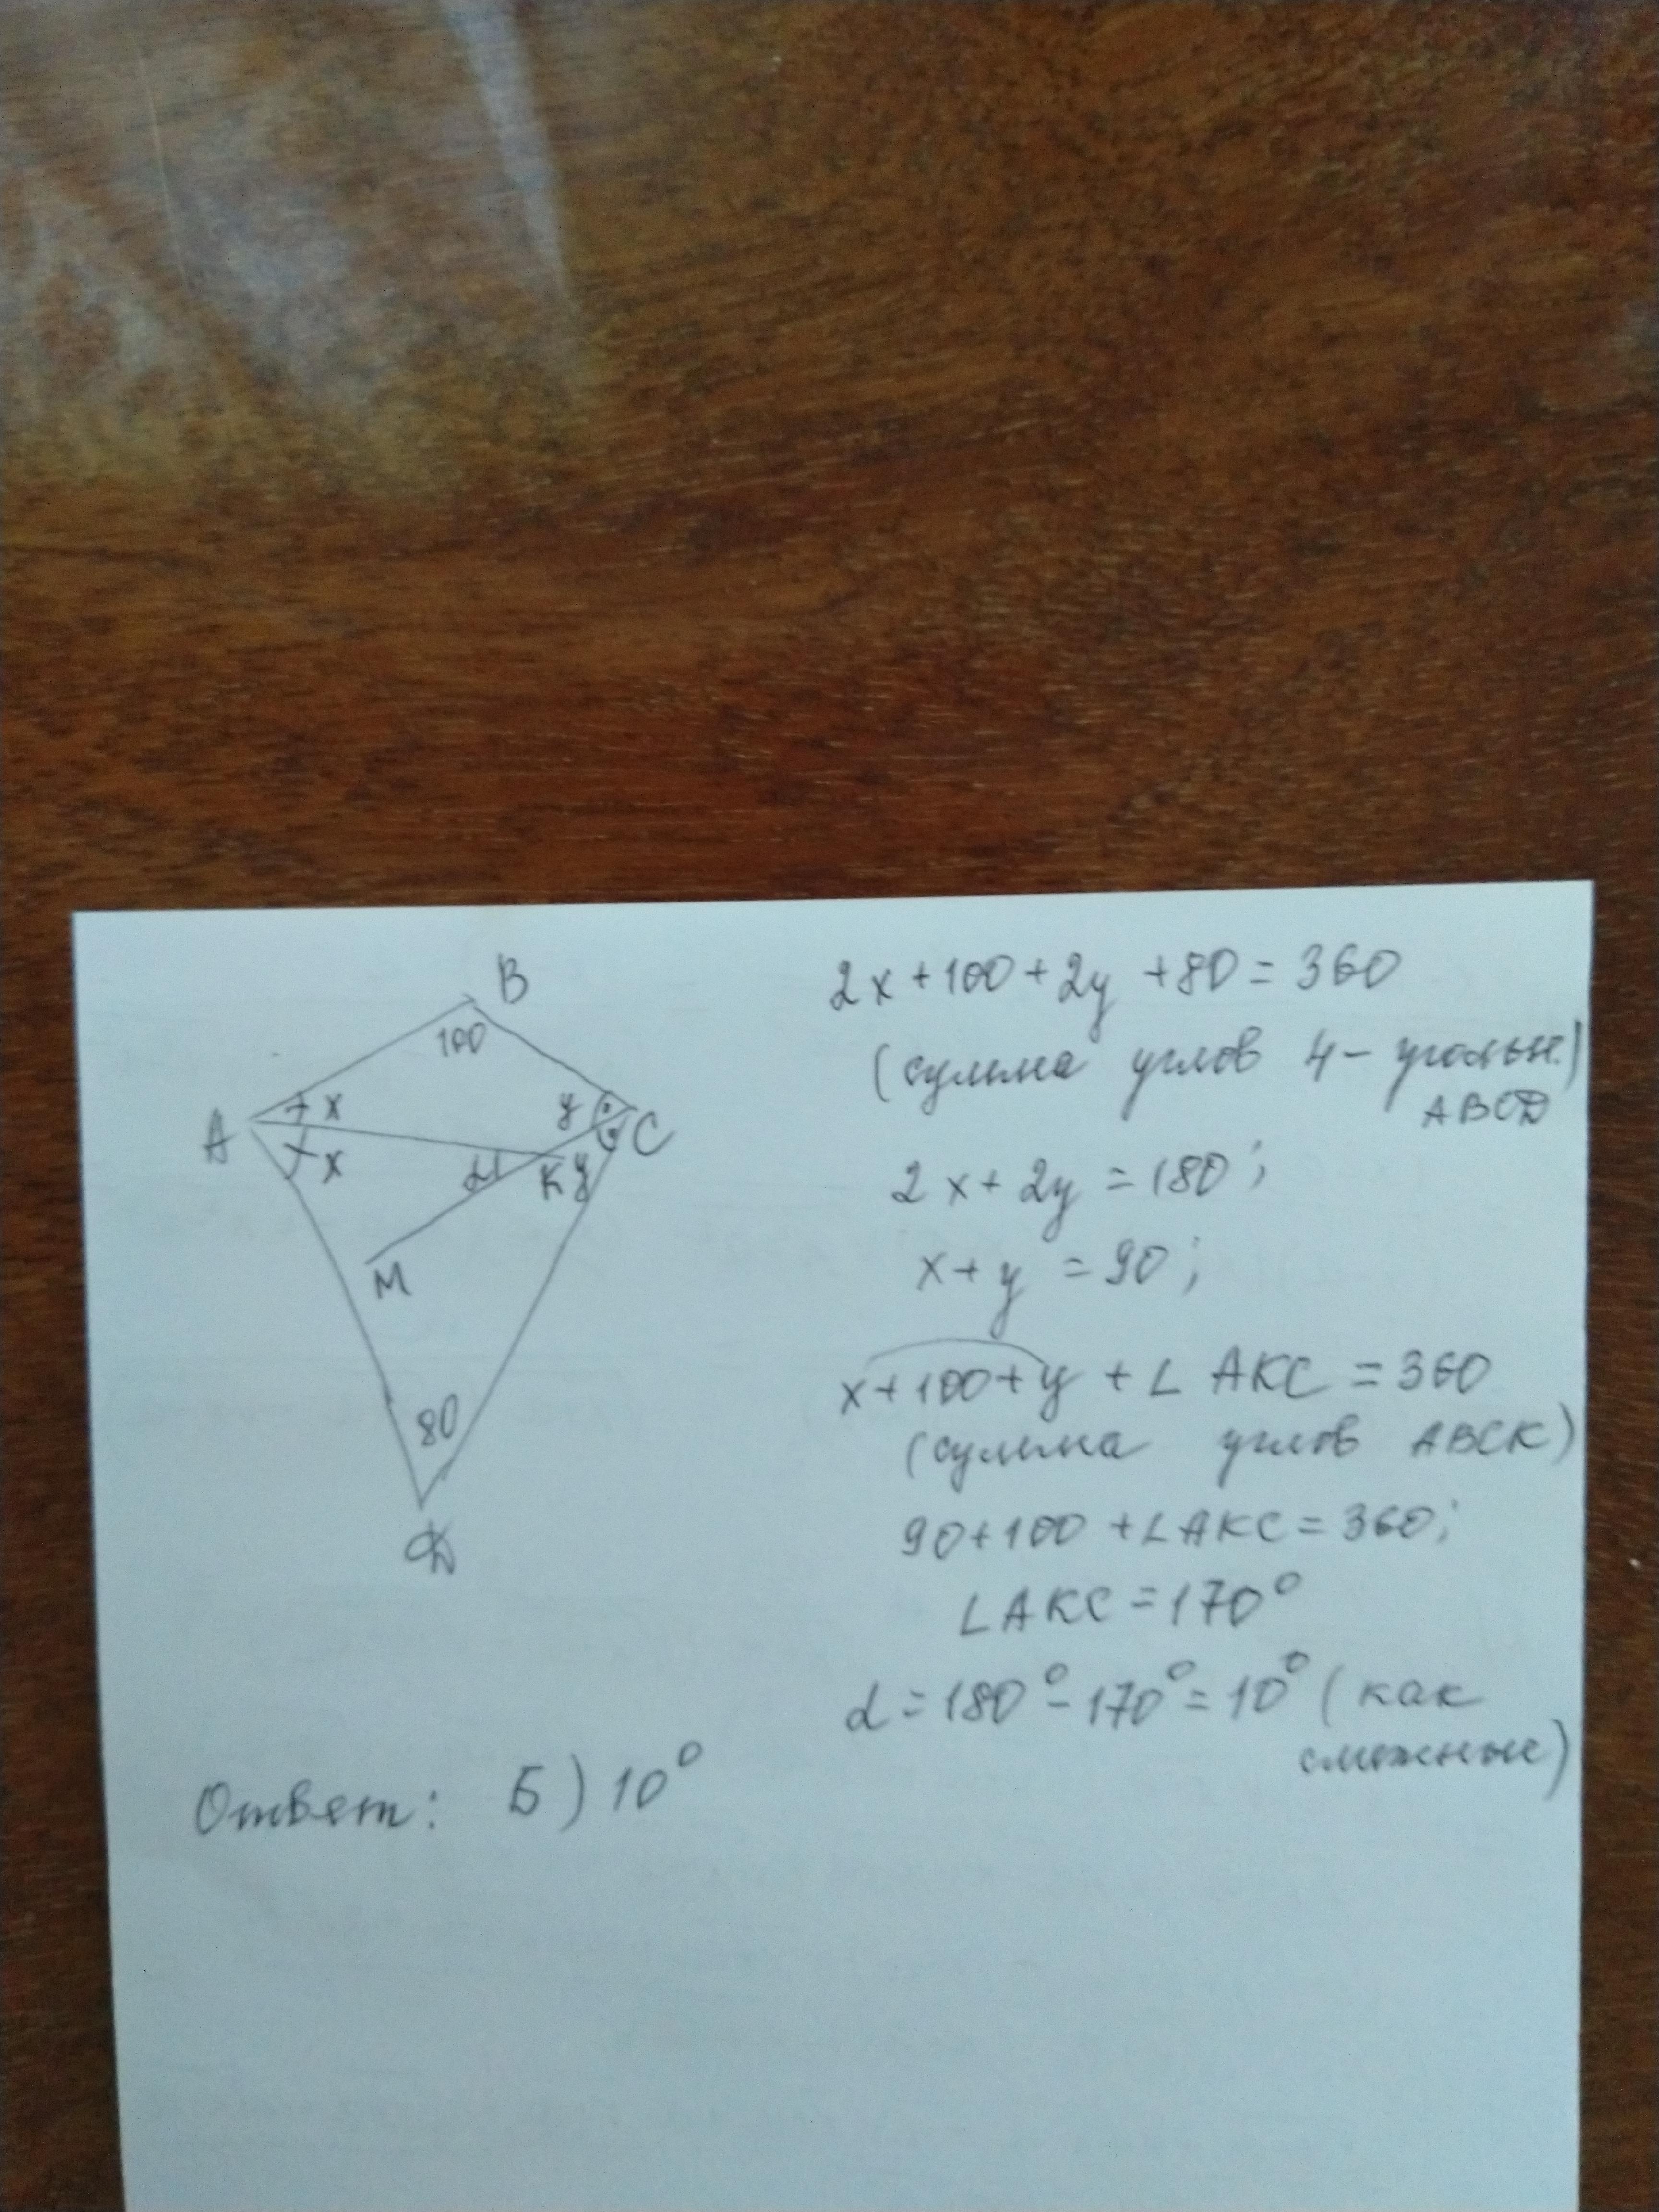 B
100
A
x
x
y
C
α
K
y
M
80
D
2x + 100 + 2y + 80 = 360
(сумма углов 4 - угольн.)
ABCD
2x + 2y = 180;
x + y = 90;
x + 100 + y + ∠ AKC = 360
(сумма углов ABCK)
90 + 100 + ∠AKC = 360;
∠AKC = 170°
α = 180° - 170° = 10° (как
смежные)
Ответ: Б) 10°